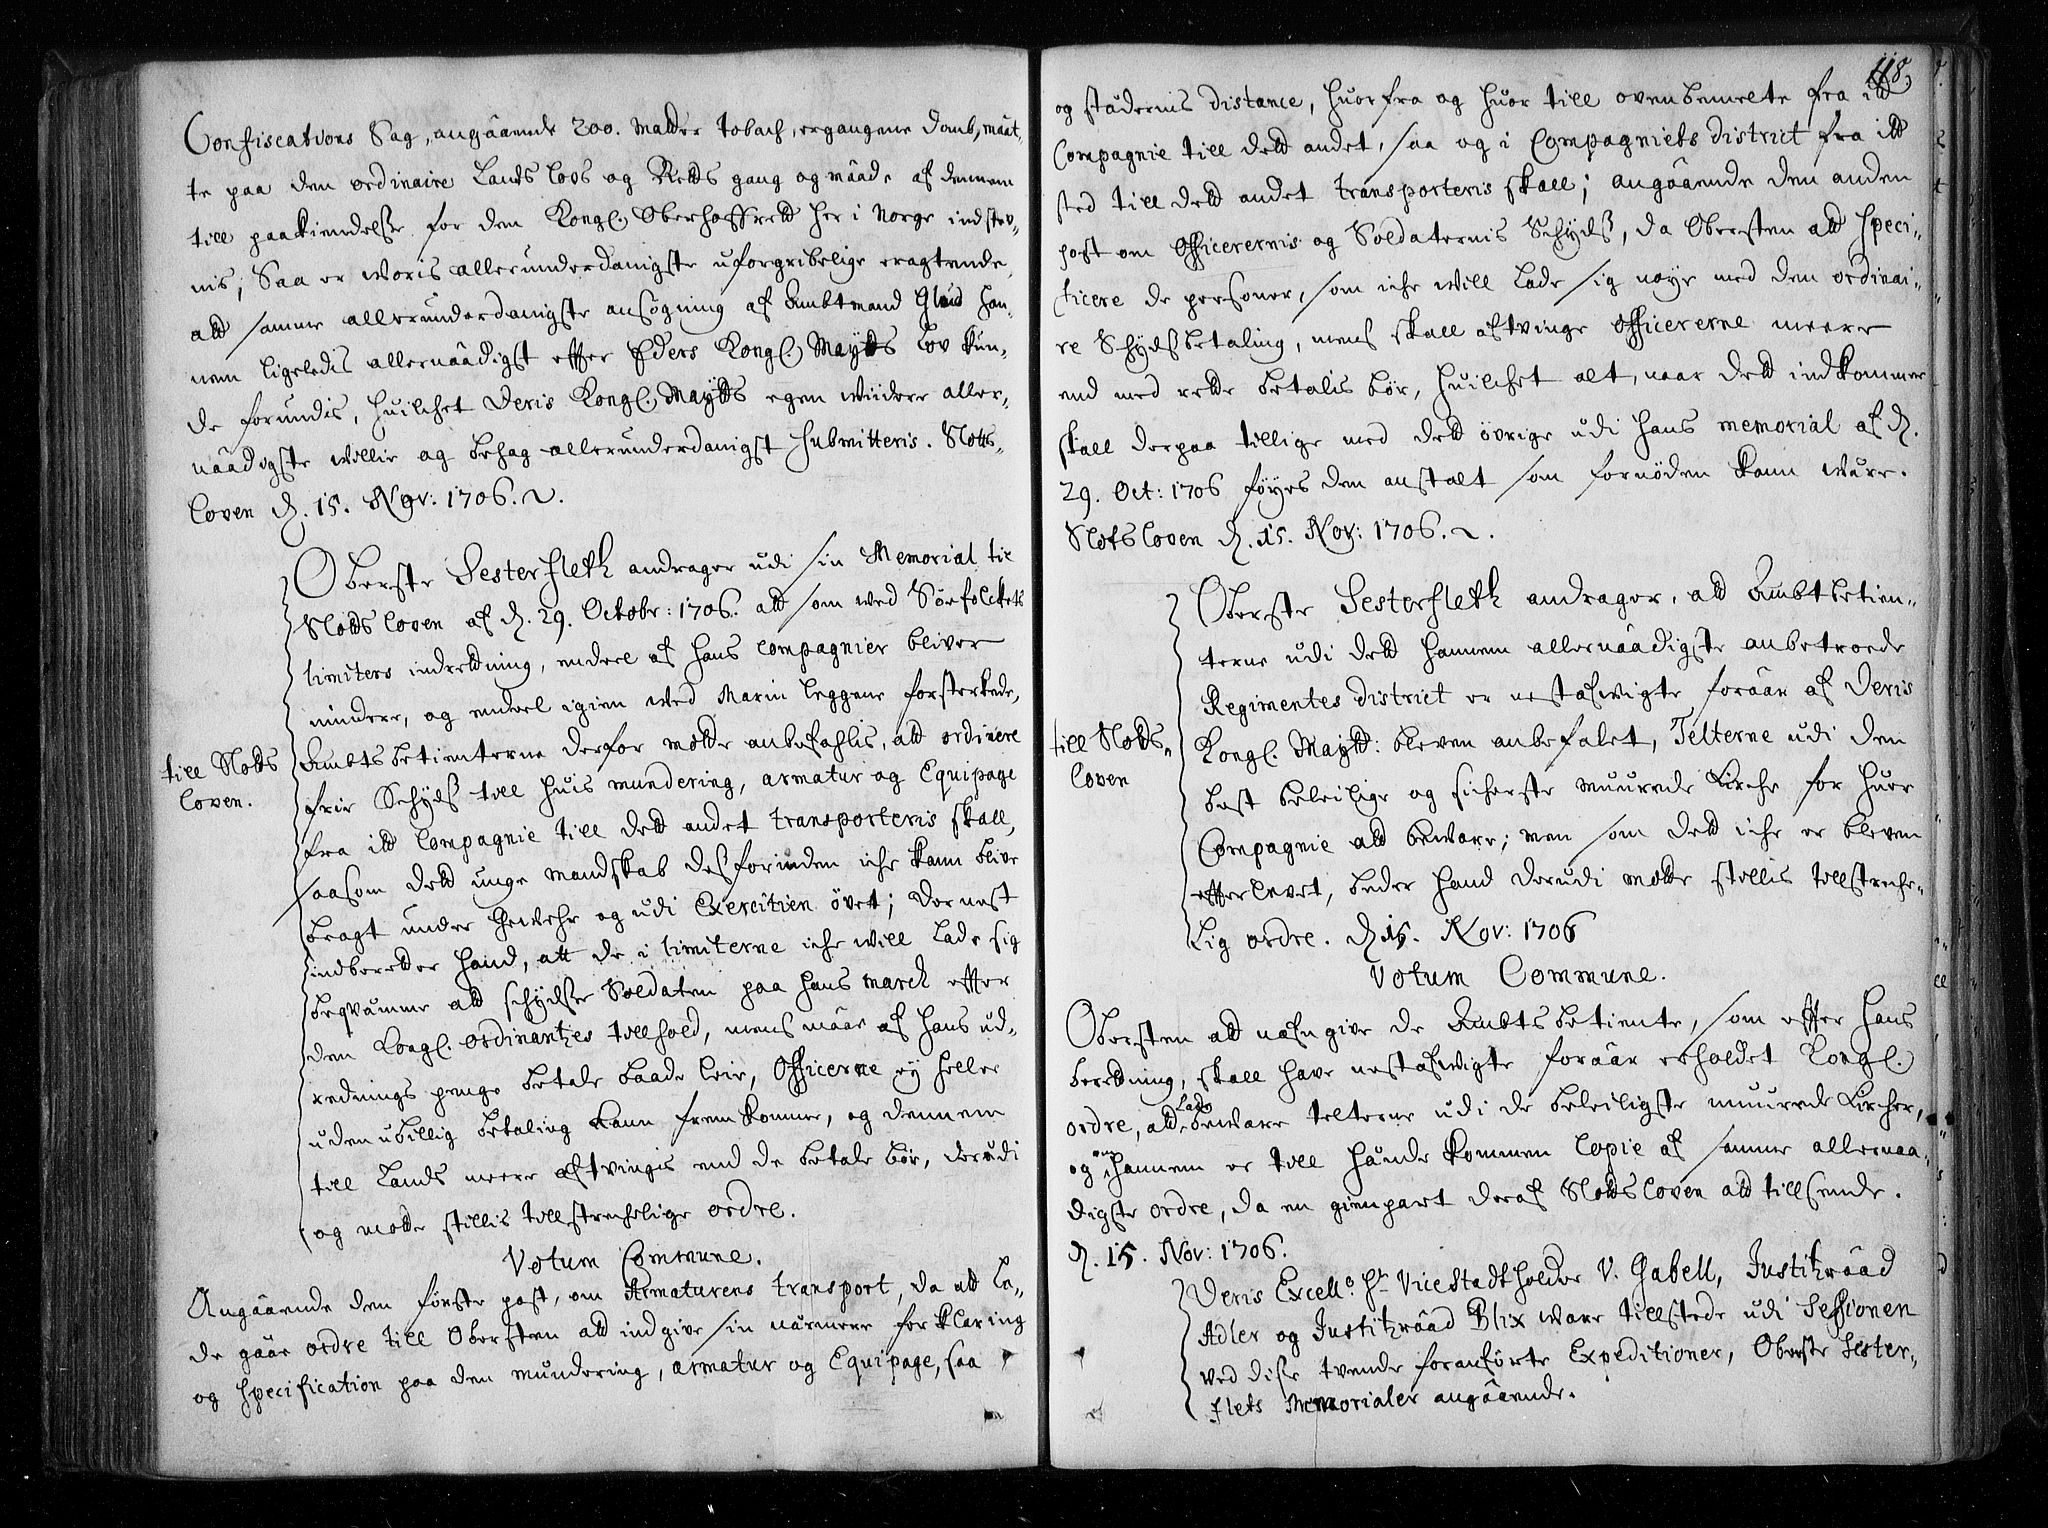 Confiscations Sag, angaaende 200. Matter tobach, ergangene domb, maat-
te paa den ordinaire Lands Lovs og Retts gang og maade af dennem
till paakiendelse for den Kongl. Oberhoffrett her i Norge indstev-
nis; Saa er woris allerunderdanigste uforgribelige eragtende
att samme allerunderdanigste ansøgning af Ambtmand Glud han-
nem ligeledis allernaadigst effter Eders Kongl. Maytts Lov kun-
de forundis, huilchet Deris Kongl. Maytts egen widere aller-
naadigste willie og behag allerunderdanigst submitteris. Slots-
Loven d. 15. Nov: 1706.
Oberste Sesterfleth andrager udi sin Memorial til
Slotts Loven af d. 29. Octobr: 1706. att som wed Søefolckets
limiters indretning, endeel af hans compagnier bliver
mindre, og endeel igien wed Marin leggene forsterkede,
Ambtsbetienterne derfor motte anbefahlis, att ordinere
frie Schyds till huis mundering, armatur og Equipage
fra itt Compagnie till dett andet transporteris skall,
saasom dett unge mandskab desforinden iche kann blive
bragt under Gewehr og udi Exercitien øvet; Dernest
indberetter hand, att de i limiterne iche will lade sig
beqvamme att schydse Soldaten paa hans march effter
den Kongl. ordinantzes tillhold, mens maae af hans ud-
rednings penge betale baade leie, Officerne ey heller
uden ubillig betaling kann fremkomme, og dennem
till Lands meere aftvingis end de betale bør, derudi
og motte stillis tillstrechelige ordre.
till Slotts
Loven.
Votum Commune.
Angaaende den første post, om Armaturens transport, da att la-
de gaae ordre till Obersten att indgive sin nærmere forklaring
og specification paa den mundering, armatur og Equipage, saa
118.
og stædernis distance, huorfra og huor till ovenbemelte fra itt
Compagnie till dett andet, saa og i Compagniets district fra itt
sted till dett andet transporteris skall; angaaende den anden
post om Officerernis og Soldaternis Schyds, da Obersten att speci-
ficere de personer, som iche will lade sig nøye med den ordinai-
re Schydsbetaling, mens skall aftvinge Officererne meere
end med rette betalis bør, huilchet alt, naar dett indkommer
skall derpaa tillige med dett øvrige udi hans memorial af d.
29. Oct: 1706 føyes den anstalt som fornøden kann were.
Slotsloven d. 15. Nov: 1706.
Oberste Sesterfleth andrager, att Ambtbetien-
terne udi dett hannem allernaadigste anbetroede
Regimentes district er nestafwigte foraar af Deris
Kongl. Maytt: bleven anbefalet, Telterne udi den
best beleilige og sicherste muurede Kirche for huer
Compagnie att beware; men som dett iche er bleven
effterlevet, beder hand derudi motte stillis tillstreche-
lig ordre. d. 15. Nov: 1706
till Slotts-
Loven
Votum Commune.
Obersten att nafngive de Ambtsbetiente, som effter hans
beretning, skall have nestafwigte foraar erholdet Kongl.
ordre, att lade beware telterne udi de beleiligste muurede Kircher,
og om hannem er till hænde kommen Copie af samme allernaa-
digste ordre, da en gienpart deraf Slotts Loven att tillsende.
d. 15. Nov: 1706.
Deris Excell: Hr Vice Stadtholder V. Gabell, Justitzraad
Adler og Justitzraad Blix ware tillstede udi Sessionen
ved disse tvende foranførte Expeditioner, Oberste Sester-
flets Memorialer angaaende.